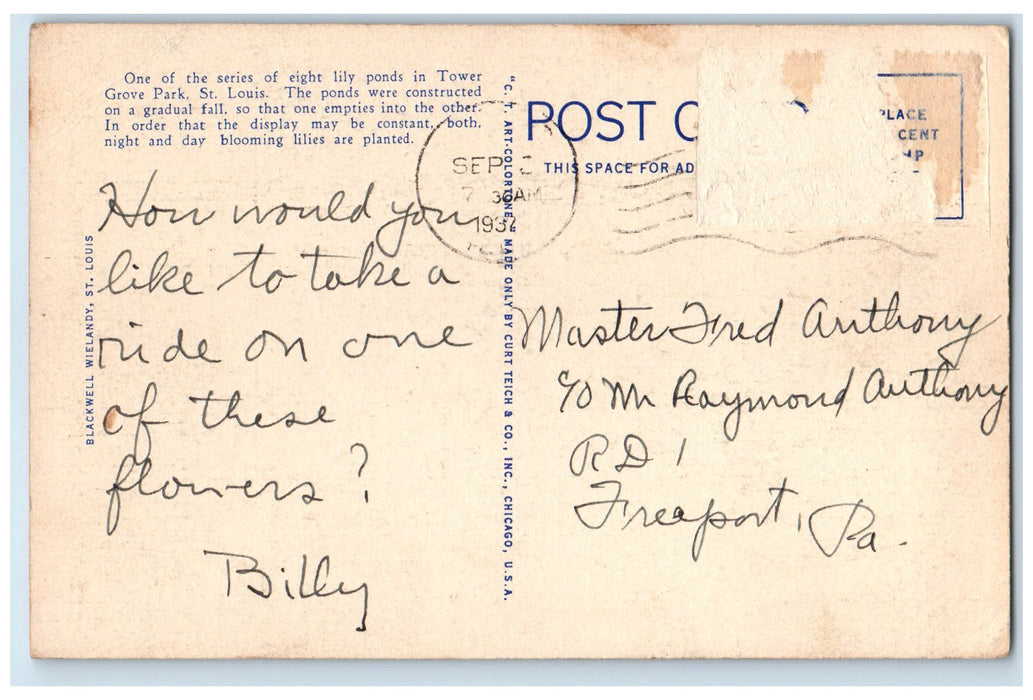 One of the series of eight lily ponds in Tower
Grove Park, St. Louis. The ponds were constructed
on a gradual fall, so that one empties into the other.
In order that the display may be constant, both,
night and day blooming lilies are planted.
BLACKWELL WIELANDY, ST. LOUIS
How would you
like to take a
ride on one
of these
flowers?
Billy
"C. T. ART-COLORTONE" MADE ONLY BY CURT TEICH & CO., INC., CHICAGO, U.S.A.
POST C
THIS SPACE FOR AD
PLACE
CENT
MP
SEP
7 30AM
193
Master Fred Anthony
c/o Mr Raymond Anthony
RD 1
Freeport, Pa.